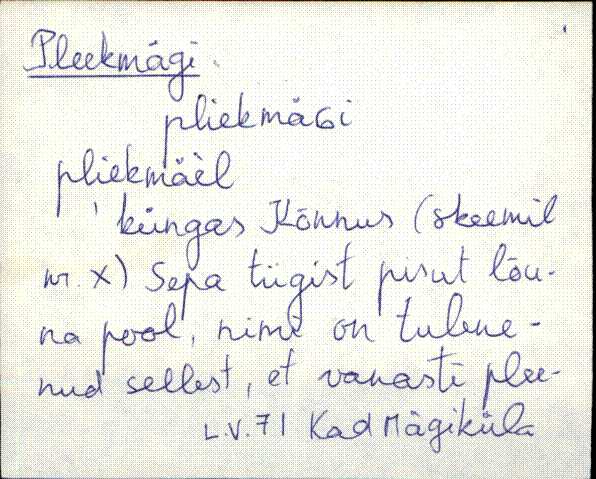 Pleekmägi
pliekmäGi
pliekmäèl
' küngas Kõnnus (skeemil
nr. X) Sepa tiigist pisut lõu-
na pool, nimi on tulene-
nud sellest, et vanasti plee-
L.V. 71 Kad Mägiküla